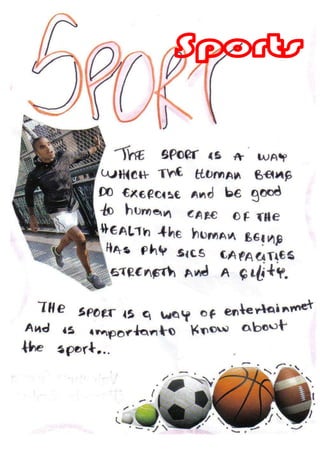 Sports
SPORT
THE SPORT IS A WAY
WHICH THE HUMAN BEING
DO EXERCISE And bE good
to human CARE OF THE
HEALTH the human BEING
HAS PHY SICS CAPACITIES
STRENGTH And A GILITY.
THE SPORT IS a way OF entertainmet
And is importanto Know about
the sport...